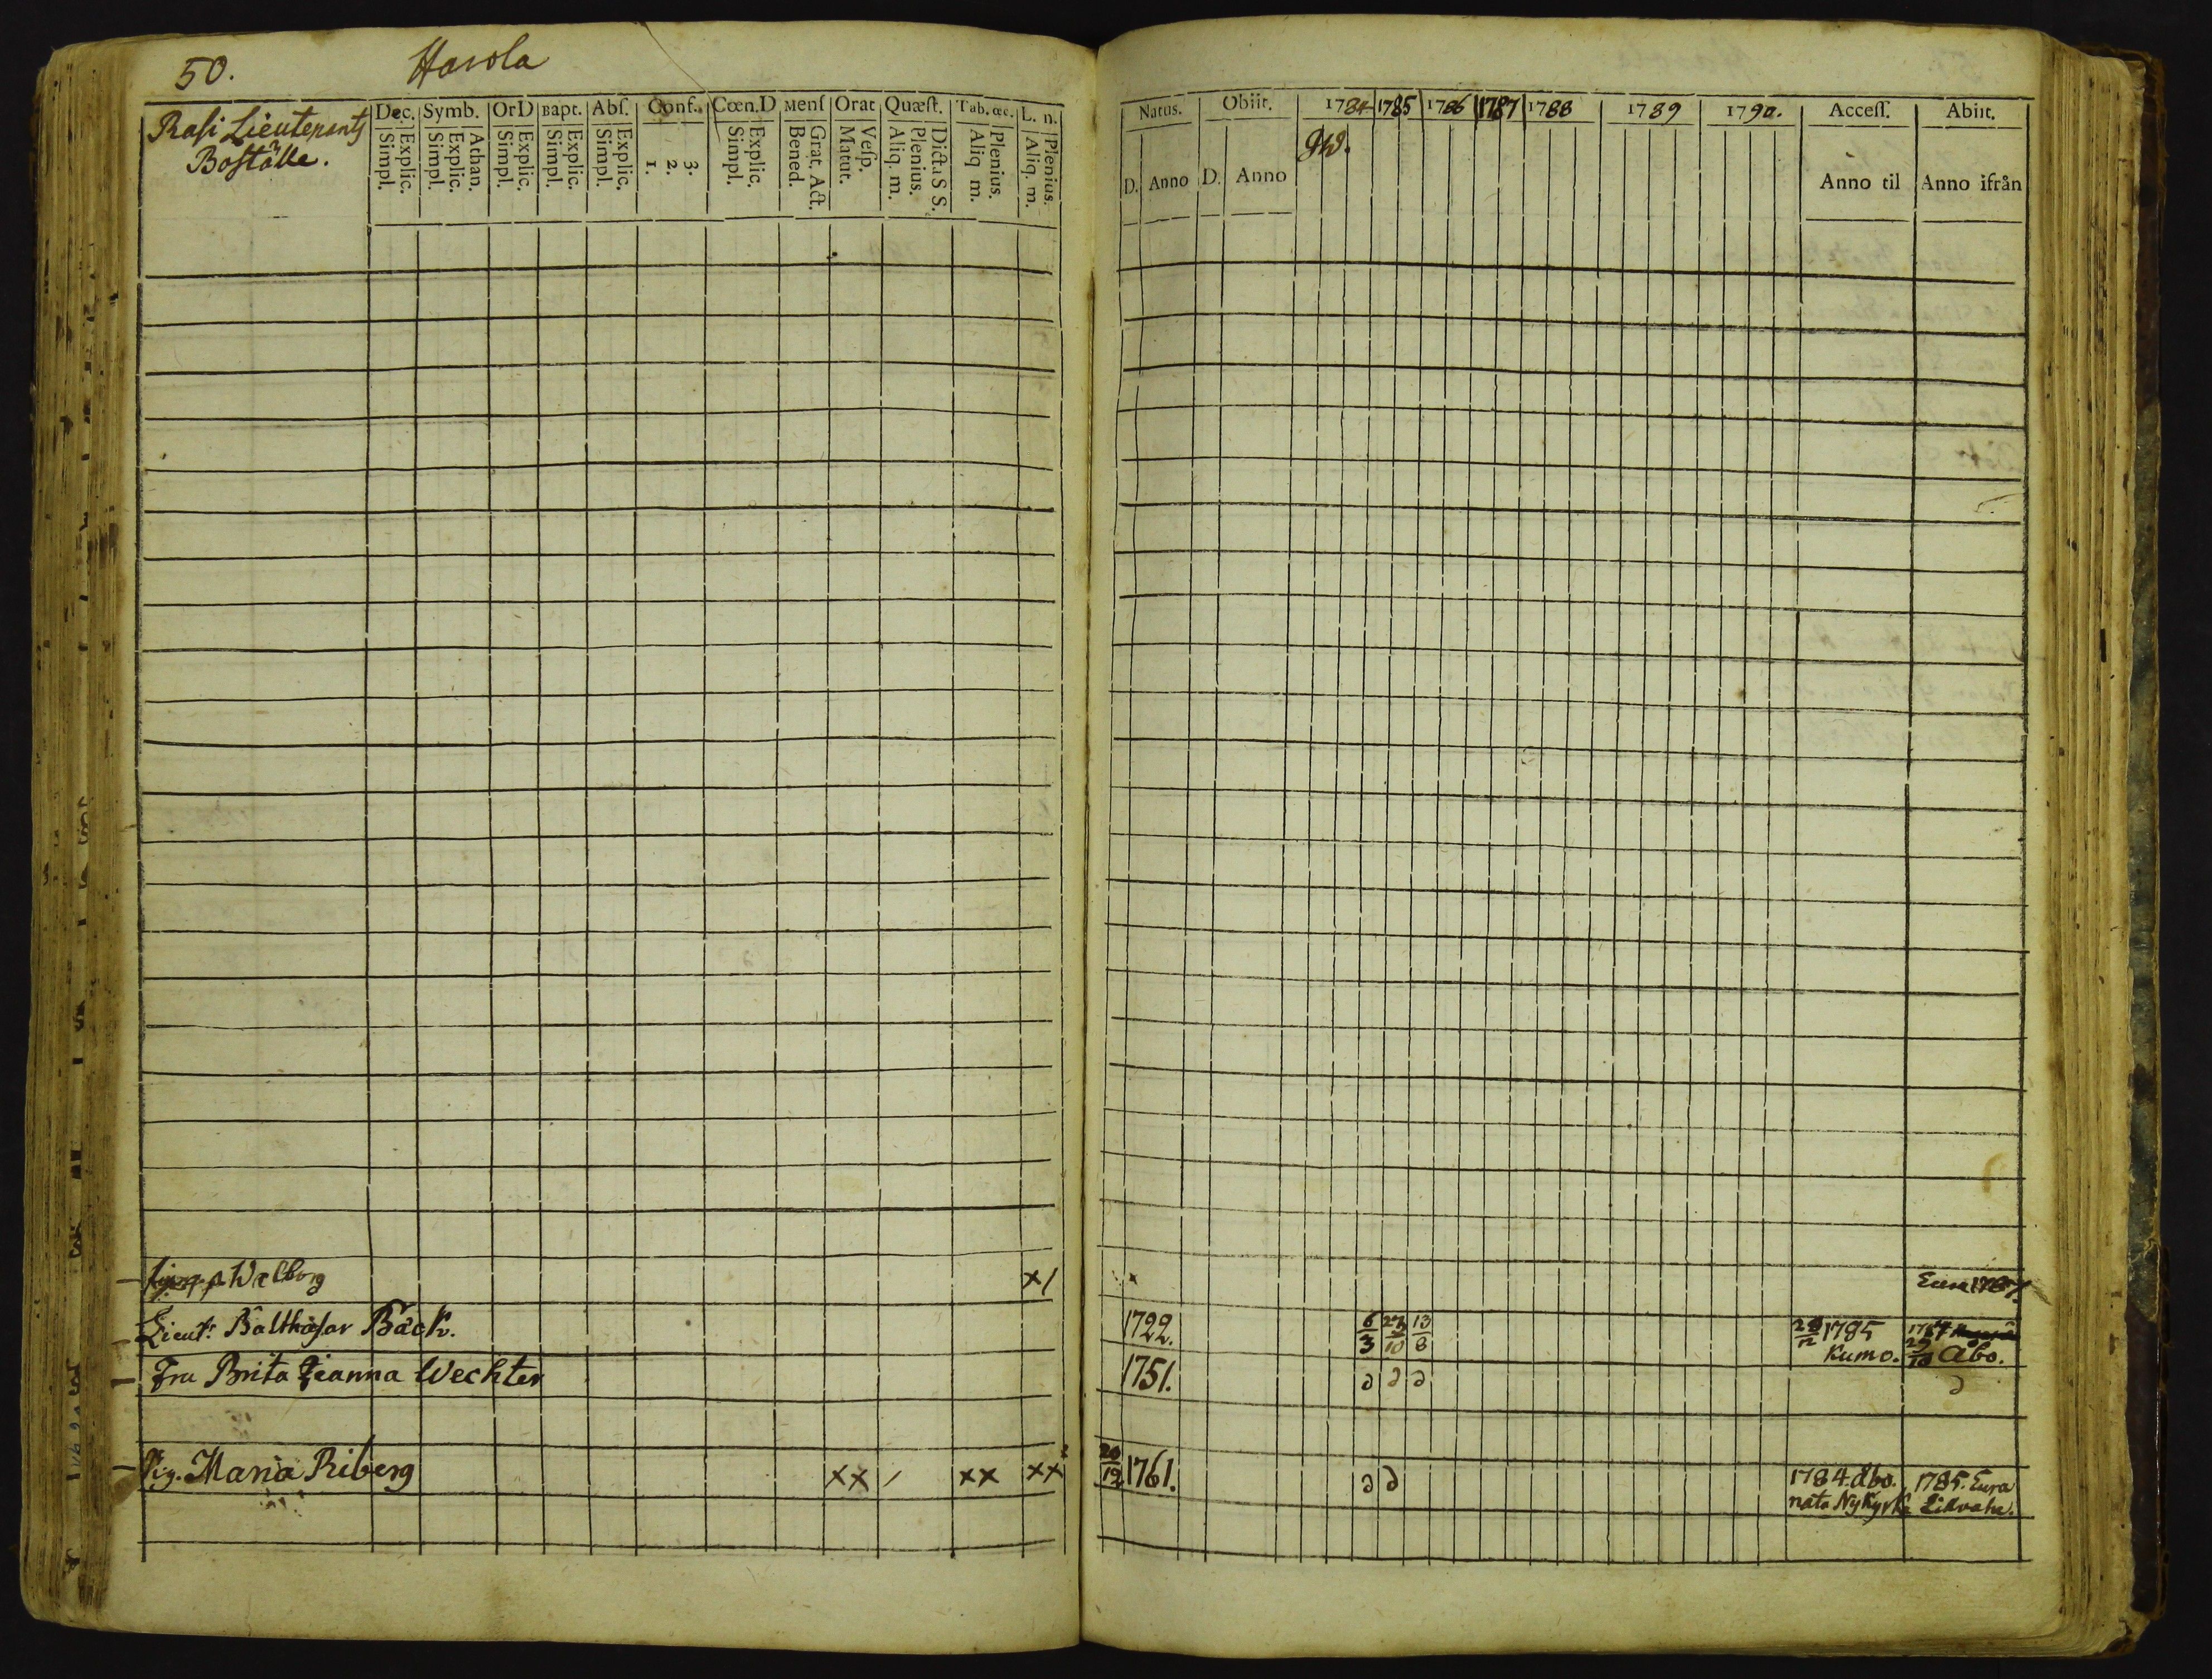 50. Harola
Rasi Lieutenants
Boställe.
Dec. Symb. OrD Bapt. Abſ. Conf. Cœn.D Menſ Orat Quæſt. Tab.œc. L. n.
Explic. Simpl.
Athan. Explic. Simpl.
Explic. Simpl.
Explic. Simpl.
Explic. Simpl.
3. 2. 1.
Explic. Simpl.
Grat. Act. Bened.
Veſp. Matut.
Dicta S S. Plenius. Aliq. m.
Plenius. Aliq m.
Plenius. Aliq. m.
Walborg x/
Lieut: Balthasar Bäck.
Fru Brita Jeanna Wechter
Pig. Maria Riberg xx / xx xx
Natus. Obiit. 1784 1785 1786 1787 1788 1789 1790. Acceſſ. Abiit.
D. Anno D. Anno Anno til Anno ifrån
Eura 1787.
1722. 6/3 27/10 13/8 1785
Kumo. Åbo.
1751. ∂ ∂ ∂ ∂
20/12 1761. ∂ ∂ 1784. Åbo. 1785. Eura
nata Nykyrka